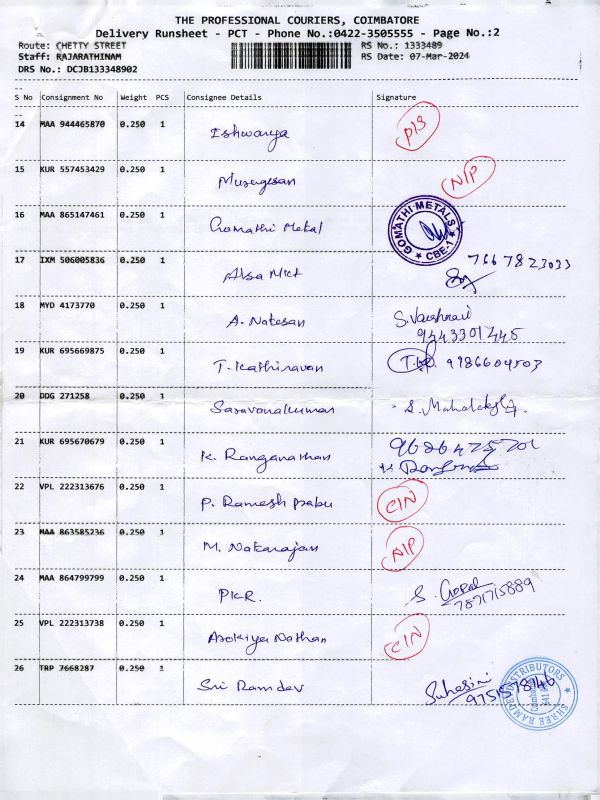 THE PROFESSIONAL COURIERS, COIMBATORE
Delivery Runsheet - PCT - Phone No.:0422-3505555 - Page No.:2
Route: CHETTY STREET RS No.: 1333489
Staff: RAJARATHINAM RS Date: 07-Mar-2024
DRS No.: DCJB133348902
S No Consignment No Weight PCS Consignee Details Signature
14 MAA 944465870 0.250 1 Ishwarya
15 KUR 557453429 0.250 1 Murugesan N/P
16 MAA 865147461 0.250 1 Gomathi Metal GOMATHI METALS CBE-1
17 IXM 506005836 0.250 1 Alsa Mkt 7667823033
18 MYD 4173770 0.250 1 A. Natesan S. Vaishnavi
9443301445
19 KUR 695669875 0.250 1 T. Kathiravan 9986604503
20 DDG 271258 0.250 1 Saravanakumar S. Mahalakshmi
21 KUR 695670679 0.250 1 K. Ranganathan
22 VPL 222313676 0.250 1 P. Ramesh prabu CIN
23 MAA 863585236 0.250 1 M. Natarajan N/P
24 MAA 864799799 0.250 1 PKR. S. Gopal
7871715889
25 VPL 222313738 0.250 1 Arokiya Nathan CIN
26 TRP 7668287 0.250 1 Sri Ramdev Suhasini
9751578146
SHREE RAMDEV DISTRIBUTORS